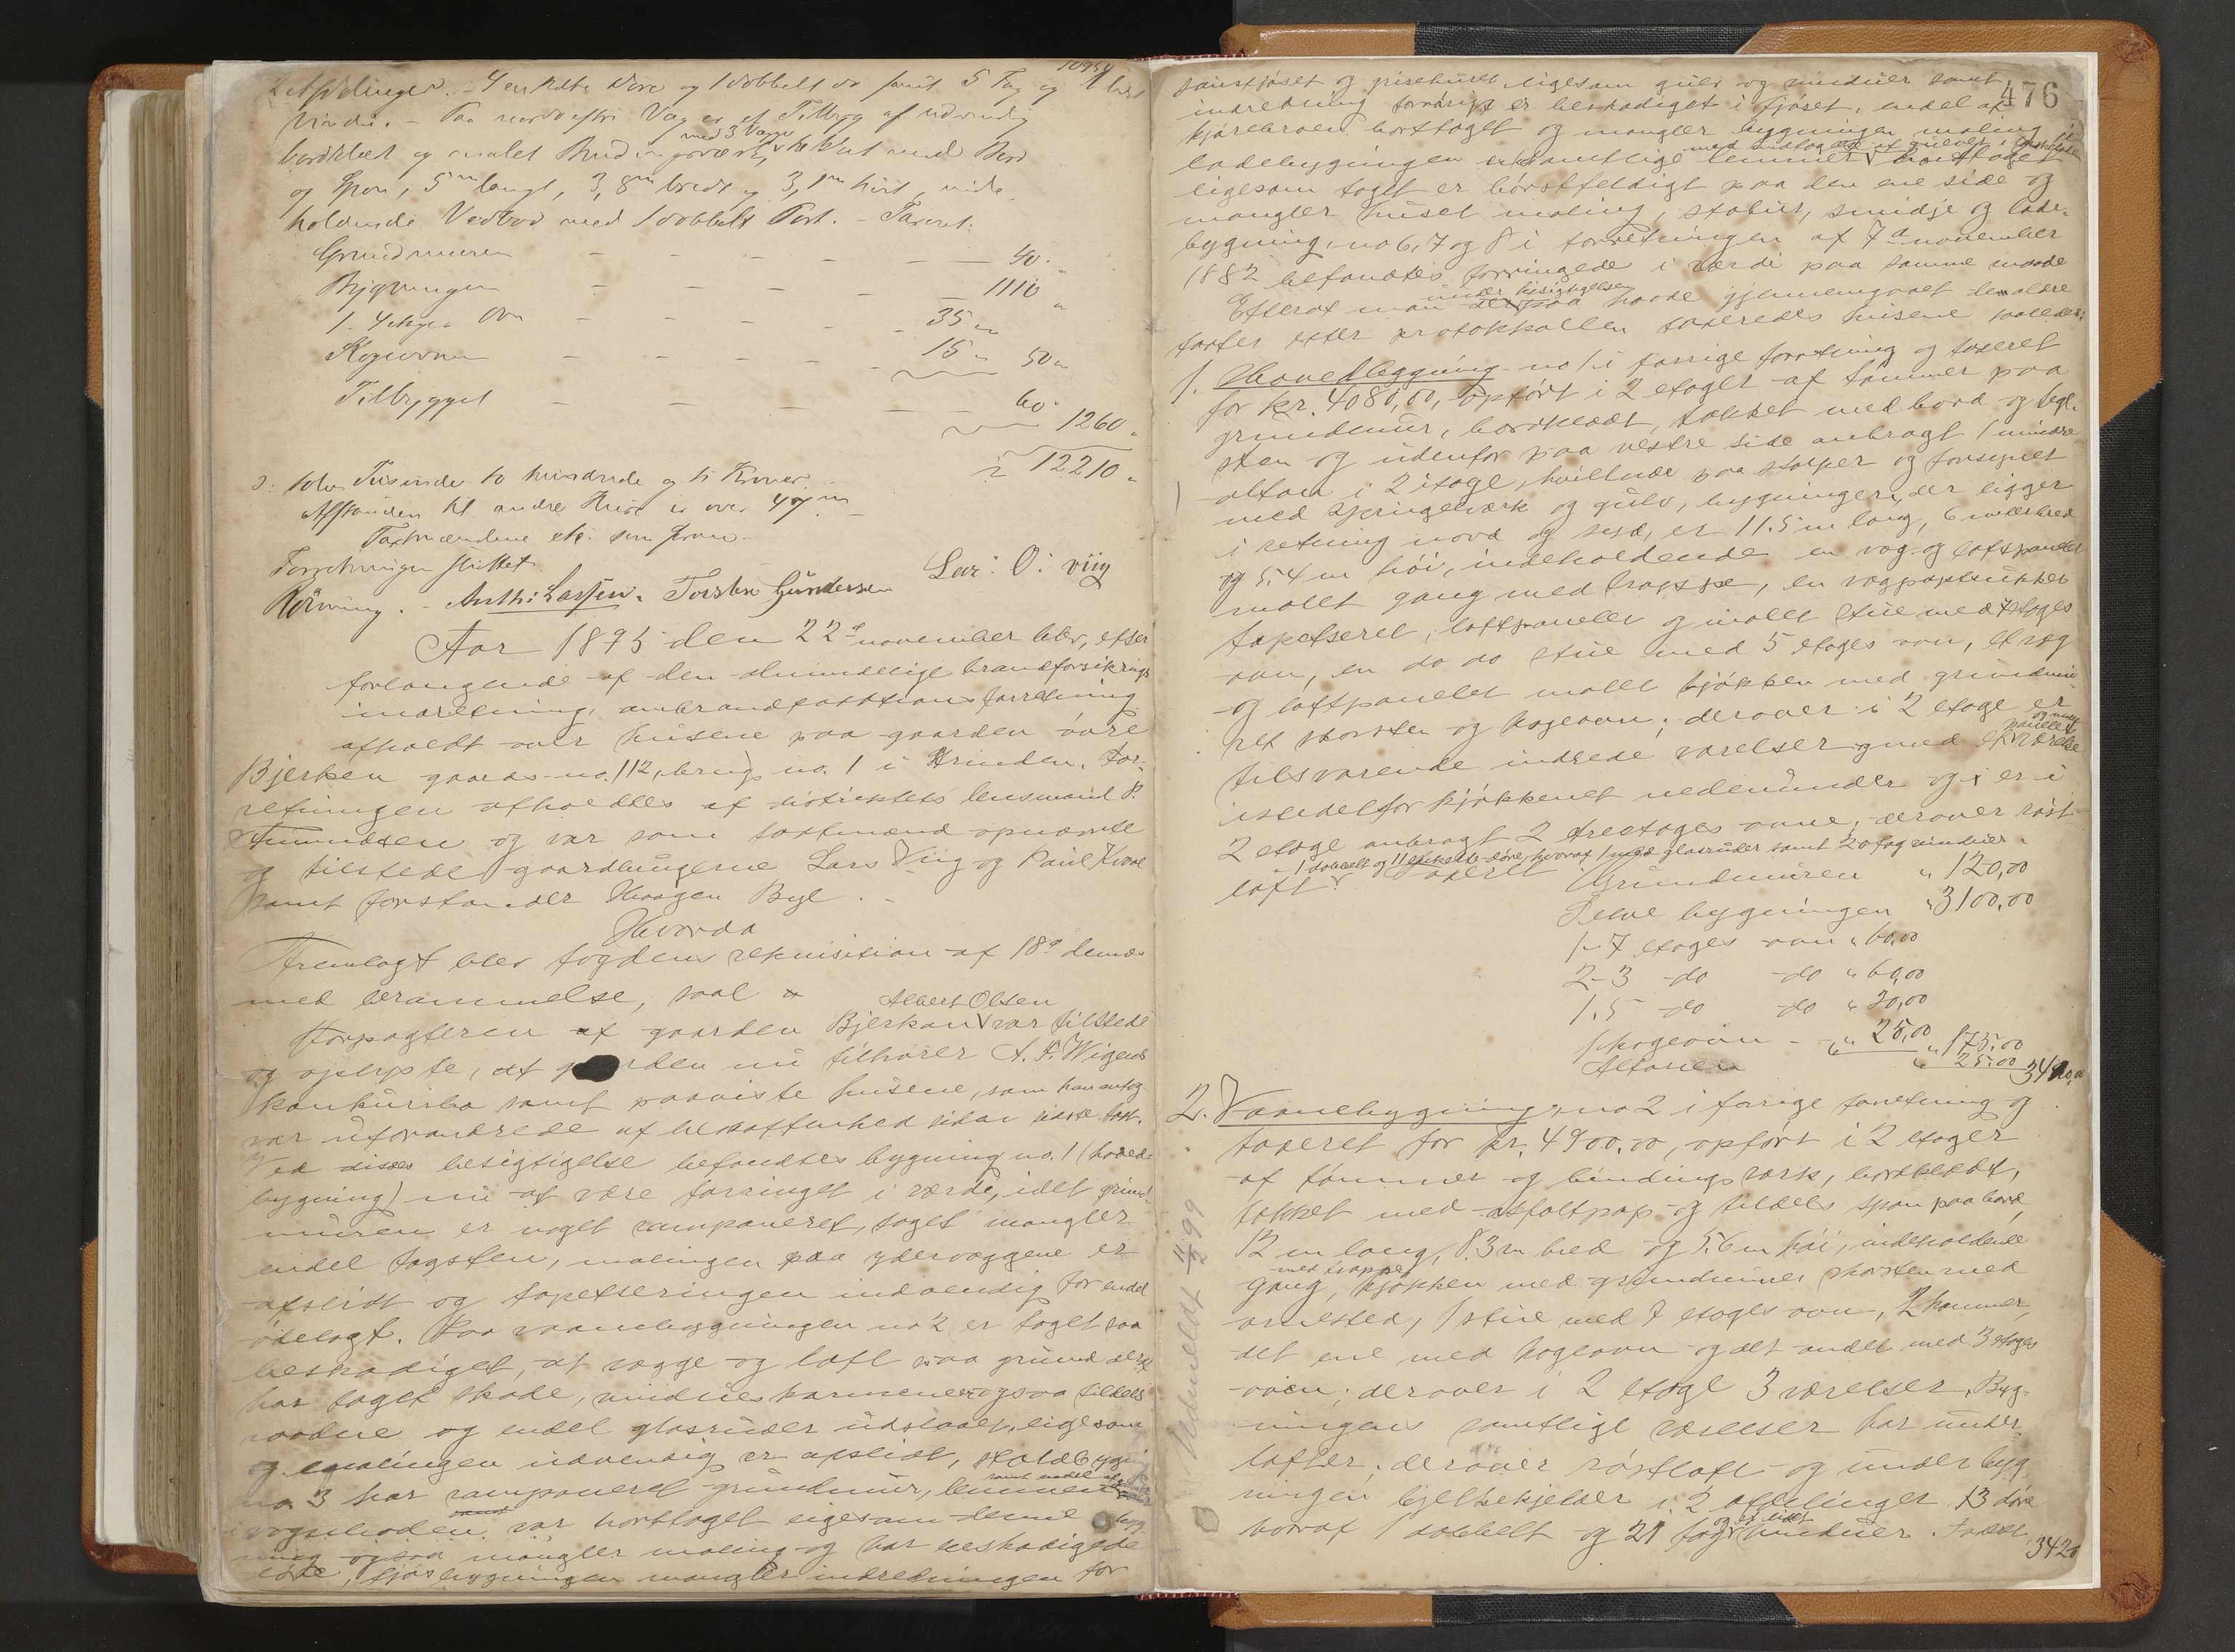 10950
2 Afdelinger. - 4 enkelte Døre og 1 dobbelt do samt 5 Fag og
Vinduer. - Paa nordvestre Væg er et Tilbyg af udvendig
med 3 Vægge
bordklædt og malet Bindingsværk, tækket med Bord
og Spon, 5 m langt, 3,8 m bredt og 3,1 m høit, inde
holdende Vedbod med 1 dobbelt Port. - Taxeret:
Grundmuren - - - - - 40.
Bygningen - - - - - 1110 "
1. 4 etages Ovn - - - - 35 "
Kogeovnen - - - - 15 " 50 "
Tilbygget - - - - 60 "
1260 "
12210 "
ɔ: tolv Tusinde to hundrede og ti Kroner.
Afstanden til andre Huse er over 47 m
Taxtmændene etc. som foran.
Forretningen sluttet
Lar: O: viig
Anth: Larsen. Torsten Gundersen
Aar 1895 den 22de november blev, efter
forlangende af den almindelige brandforsikrings
indretning, ombrandtaxationsforretning
afholdt over husene paa gaarden øvre
Bjerken gaards-no. 112, brugs no. 1 i Strinden. For-
retningen afholdtes af distriktets lensmand P.
Amundsen og var som taxtmænd opnævnte
og tilstede gaardbrugerne Lars Viig og Paul Kvaal
samt forstander Haagen Bye.
Hvorda
Fremlagt blev fogdens rekvisition af 18de dennes
med berammelse, saal
Albert Olsen
Forpagteren af gaarden Bjerkan var tilstede
og oplyste, at gaarden nu tilhører A. F. Wigens
konkursbo samt paaviste husene, som han antog
var uforandrede af beskaffenhed siden sidste taxt.
Ved besigtigelse befandtes bygning no. 1 (hoved-
bygning) nu at være forringet i værdi, idet grund-
muren er noget ramponeret, taget mangler
endel tagsten, malingen paa ydervæggene er
afslidt og tapetseringen indvendig for endel
ødelagt. Paa vaanebygningen no 2 er taget saa
beskadiget, at vægge og loft paa grund deraf
har taget skade, vindueskarmene ogsaa tildels
raadne og endel glasruder udslaaet, ligesom
og malingen udvendig er afslidt, staldbygning
no. 3 har ramponeret grundmur, lemmen
samt endel af
vognboden var borttaget ligesom denne byg
ning ogsaa mangler maling og har beskadigede
døre, fjøsbygningen mangler indredningen for
476
sauefjøset og grisehuset ligesom gulv og vinduer samt
indredning forøvrigt er beskadiget i fjøset, endel af
kjørebroen borttaget og mangler bygningen maling i
med undtagelse af gulvet i
ladebygningen er samtlige lemmer borttaget
ligesom taget er børstfeldigt paa den ene side og
mangler huset maling, stabur, smidje og lade-
bygning, no 6, 7 og 8 i forretningen af 7de november
1882 befandtes forringede i værdi paa samme maade
under besigtigelsen
Efterat man havde gjennemgaaet de ældre
taxter efter protokollen taxeredes husene saaledes:
1. Hovedbygning no 1 i forrige forretning og taxeret
for kr. 4080,00, opført i 2 etager af tømmer paa
grundmur, bordklædt, tækket med bord og tegl-
sten og udenfor paa vestre side anbragt 1 mindre
altan i 2 etage, hvilende paa stolper og forsynet
med springværk og gulv, bygningen, der ligger
i retning nord og syd, er 11.5 m lang, 6 meter bred
og 5.4 m høi, indeholdende en væg- og loftspanelet
malet gang med trappe, en vægpapstrukket
tapetseret, loftspanelet og malet stue med 7 etages
ovn, en do do stue med 5 etages ovn, et væg
og loftpanelet malet kjøkken med grundmu-
ret skorsten og kogeovn; derover i 2 etage er
og malet
panelet
tilsvarende indrede værelser med et værelse
istedetfor kjøkkenet nedenunder og er i
2 etage anbragt 2 treetages ovne; derover røst-
1 dobbelt og 11 enkelte døre, hvoraf 1 med glasruder samt 20 fag vinduer.
loft. Taxeret Grundmuren " 120,00
Selve bygningen " 3100,00
1- 7 etages ovn " 60,00
2-3 do do " 60,00
1.5 do do " 30,00
1 kogeovn - " 25,00 " 175.00
Altanen " 25.00 3420,00
2. Vaanebygning, no 2 i forrige forretning og
taxeret for kr. 4900.00, opført i 2 etager
af tømmer og bindingsværk, bordklædt,
tækket med asfaltpap og tildels spon paa bord,
12 m lang, 8.3 m bred og 5.6 m høi, indeholdende
med trappe
gang, kjøkken med grundmuret skorsten med
arnested, 1 stue med 7 etages ovn, 2 kammer,
det ene med kogeovn og det andet med 3 etages
ovn; derover i 2 etage 3 værelser. Byg-
ningens samtlige værelser har under-
lofter; derover røstloft og under byg
ningen bjelkekjelder i 2 afdelinger. 13 døre
og et lidet
hvoraf 1 dobbelt og 21 fag vinduer. Taxeret
3420
Udmeldt 99